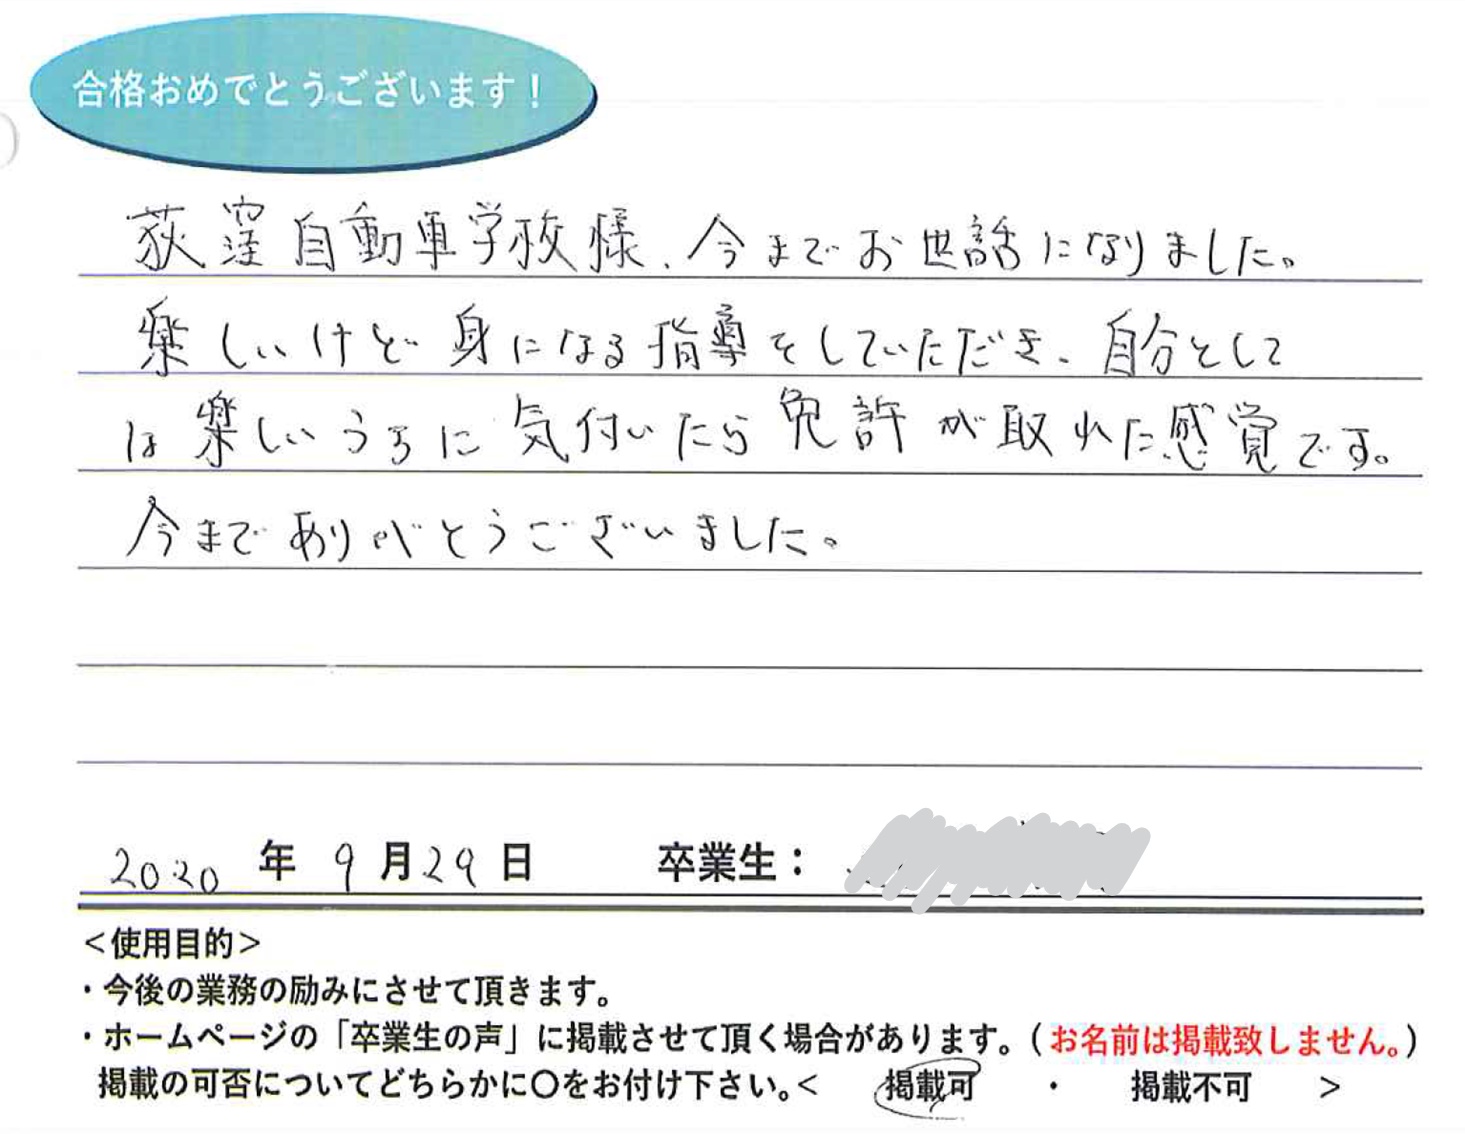 合格おめでとうございます！
荻窪自動車学校様、今までお世話になりました。
楽しいけど身になる指導をしていただき、自分として
は楽しいうちに気付いたら免許が取れた感覚です。
今までありがとうございました。
2020年9月29日　卒業生：
＜使用目的＞
・今後の業務の励みにさせて頂きます。
・ホームページの「卒業生の声」に掲載させて頂く場合があります。（お名前は掲載致しません。）
掲載の可否についてどちらかに〇をお付け下さい。＜　掲載可　・　掲載不可　＞